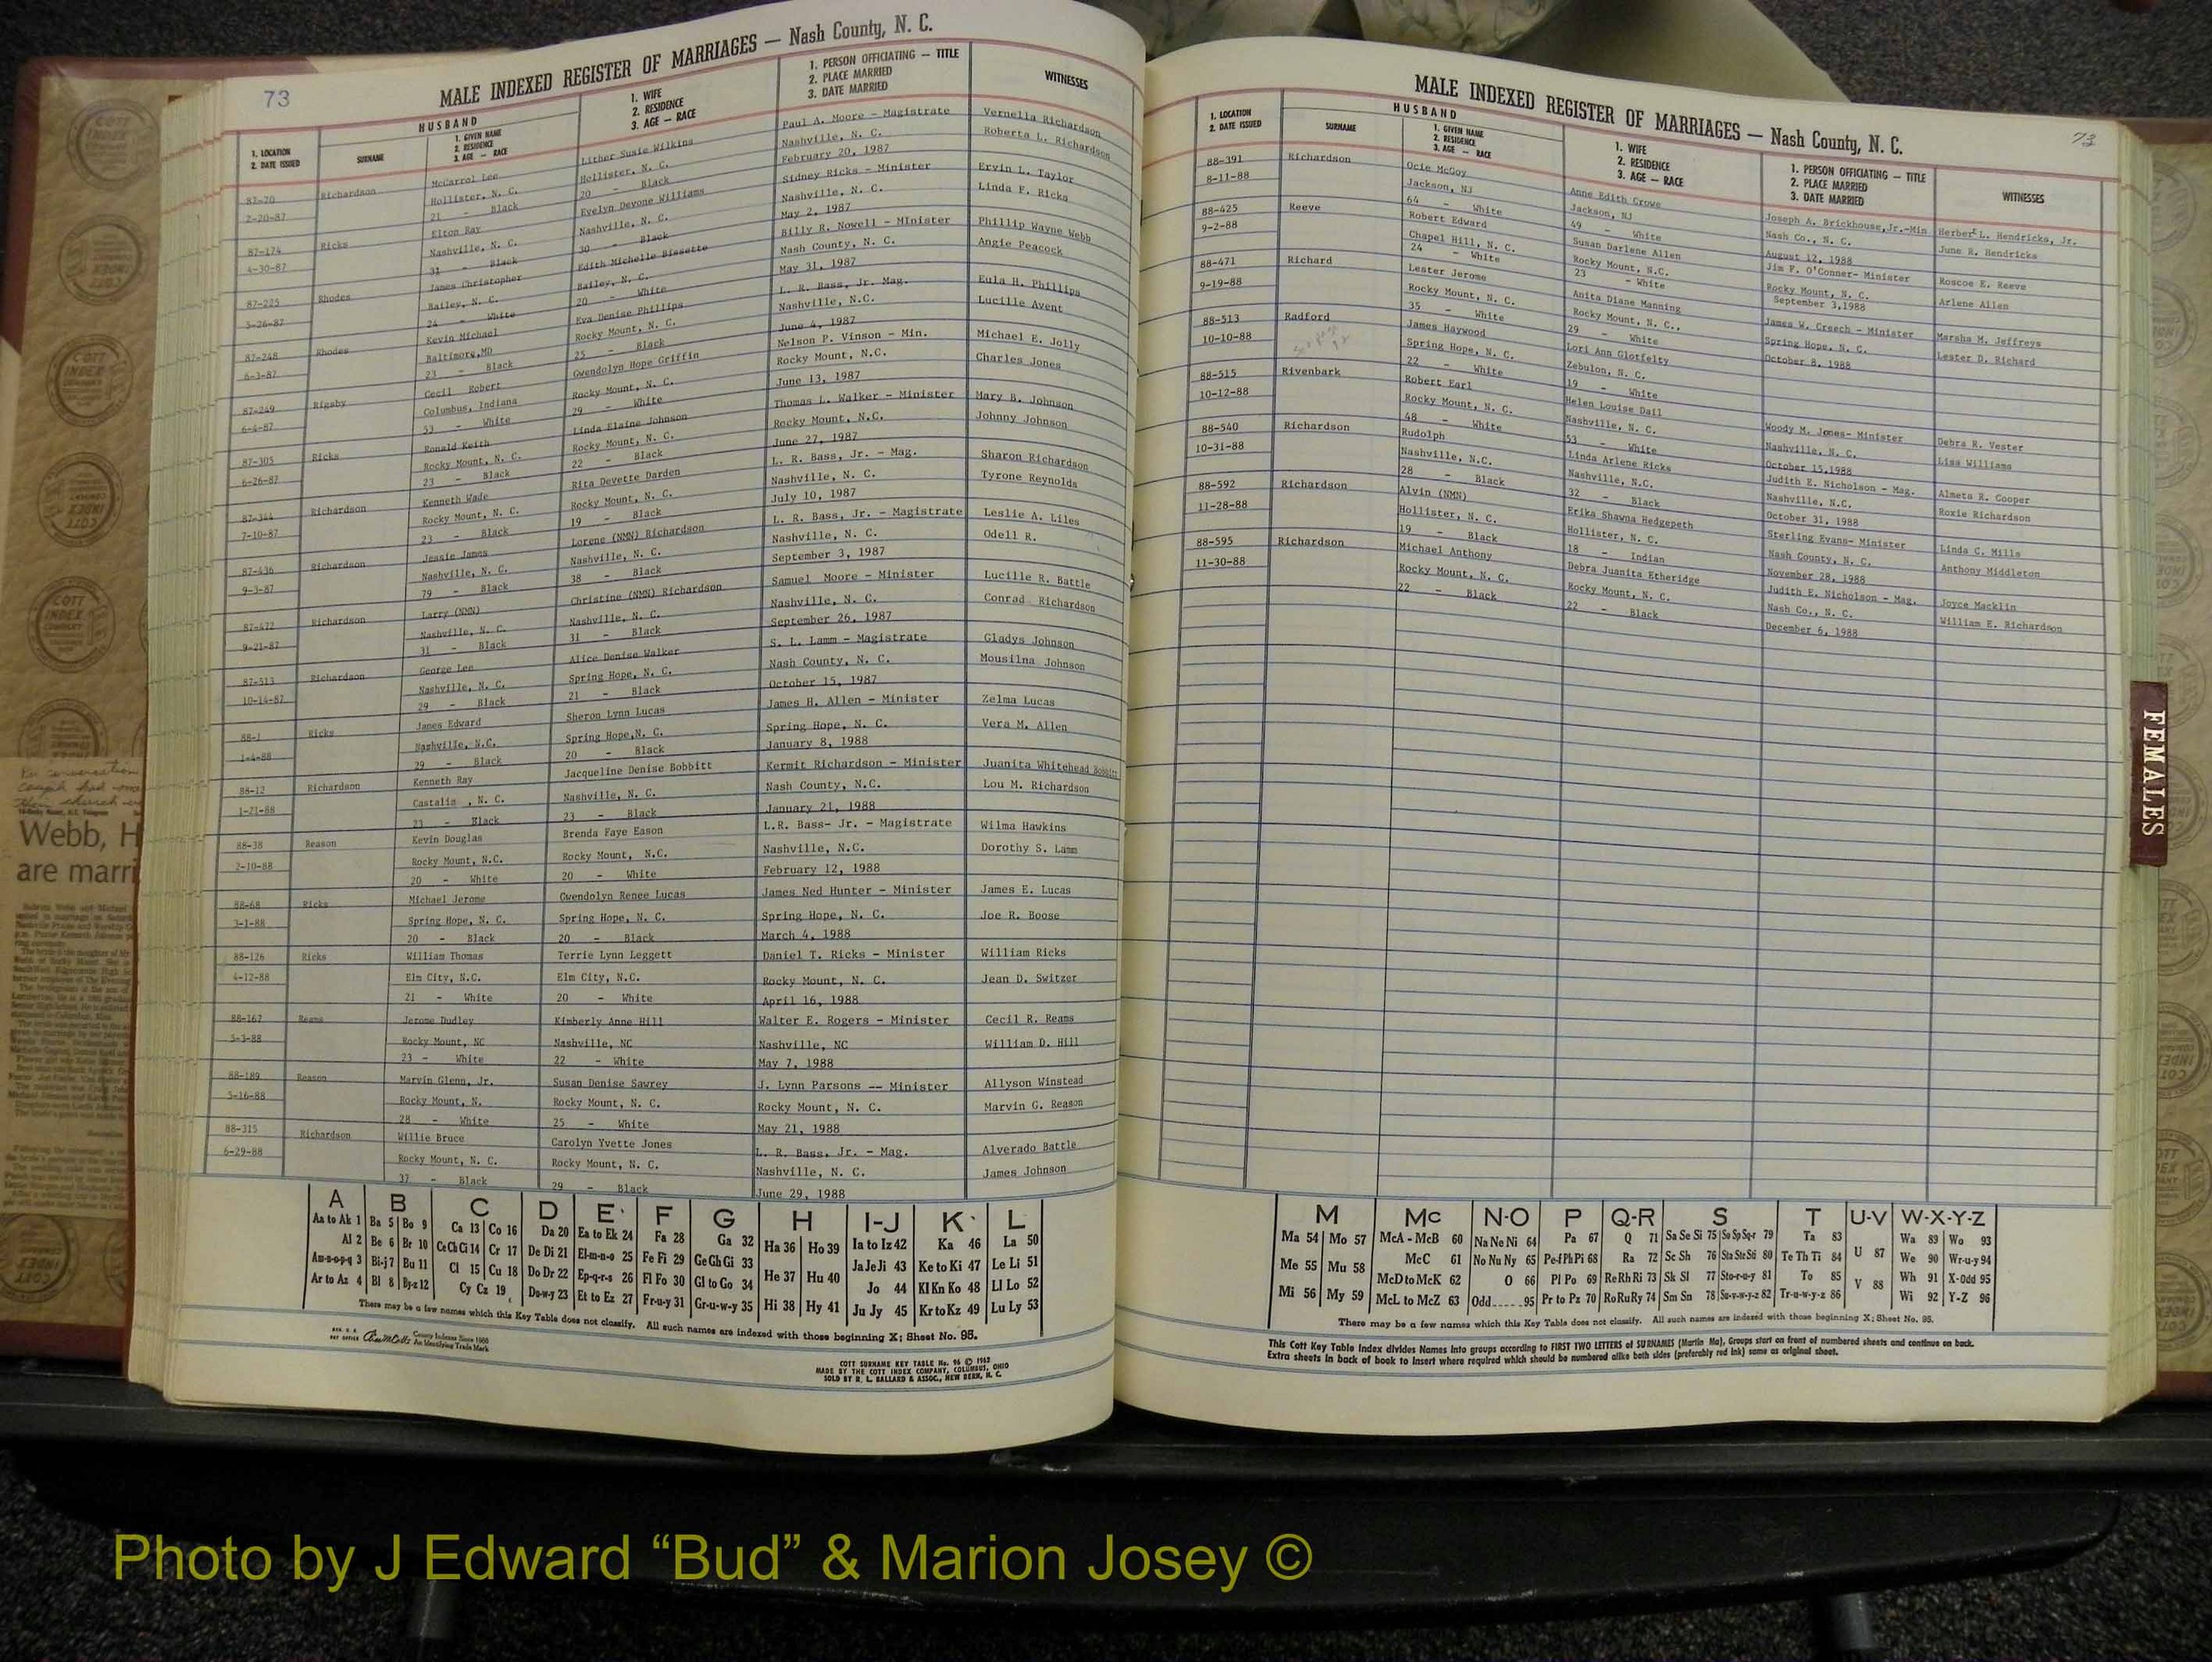 73
MALE INDEXED REGISTER OF MARRIAGES — Nash County, N. C.
1. LOCATION
2. DATE ISSUED
HUSBAND
SURNAME
1. GIVEN NAME
2. RESIDENCE
3. AGE — RACE
1. WIFE
2. RESIDENCE
3. AGE — RACE
1. PERSON OFFICIATING — TITLE
2. PLACE MARRIED
3. DATE MARRIED
WITNESSES
87-70 Richardson McCarrol Lee Lither Susie Wilkins Paul A. Moore - Magistrate Vernelia Richardson
2-20-87 Hollister, N. C. Hollister, N. C. Nashville, N. C. Roberta L. Richardson
21 - Black 20 - Black February 20, 1987
87-174 Ricks Elton Ray Evelyn Devone Williams Sidney Ricks - Minister Ervin L. Taylor
4-30-87 Nashville, N. C. Nashville, N. C. Nashville, N. C. Linda F. Ricks
31 - Black 30 - Black May 2, 1987
87-225 Rhodes James Christopher Edith Michelle Bissette Billy R. Nowell - MInister Phillip Wayne Webb
5-26-87 Bailey, N. C. Bailey, N. C. Nash County, N. C. Angie Peacock
24 - White 20 - White May 31, 1987
87-248 Rhodes Kevin Michael Eva Denise Phillips L. R. Bass, Jr. Mag. Eula H. Phillips
6-3-87 Baltimore,MD Rocky Mount, N. C. Nashville, N.C. Lucille Avent
23 - Black 25 - Black June 4, 1987
87-249 Rigsby Cecil Robert Gwendolyn Hope Griffin Nelson P. Vinson - Min. Michael E. Jolly
6-4-87 Columbus, Indiana Rocky Mount, N. C. Rocky Mount, N.C. Charles Jones
53 - White 29 - White June 13, 1987
87-305 Ricks Ronald Keith Linda Elaine Johnson Thomas L. Walker - Minister Mary B. Johnson
6-26-87 Rocky Mount, N. C. Rocky Mount, N. C. Rocky Mount, N.C. Johnny Johnson
23 - Black 22 - Black June 27, 1987
87-344 Richardson Kenneth Wade Rita Devette Darden L. R. Bass, Jr. - Mag. Sharon Richardson
7-10-87 Rocky Mount, N. C. Rocky Mount, N. C. Nashville, N. C. Tyrone Reynolds
23 - Black 19 - Black July 10, 1987
87-436 Richardson Jessie James Lorene (NMN) Richardson L. R. Bass, Jr. - Magistrate Leslie A. Liles
9-3-87 Nashville, N. C. Nashville, N. C. Nashville, N. C. Odell R.
79 - Black 38 - Black September 3, 1987
87-472 Richardson Larry (NMN) Christine (NMN) Richardson Samuel Moore - Minister Lucille R. Battle
9-21-87 Nashville, N. C. Nashville, N. C. Nashville, N. C. Conrad Richardson
31 - Black 31 - Black September 26, 1987
87-513 Richardson George Lee Alice Denise Walker S. L. Lamm - Magistrate Gladys Johnson
10-14-87 Nashville, N. C. Spring Hope, N. C. Nash County, N. C. Mousilna Johnson
29 - Black 21 - Black October 15, 1987
88-1 Ricks James Edward Sheron Lynn Lucas James H. Allen - Minister Zelma Lucas
1-4-88 Nashville, N.C. Spring Hope,N. C. Spring Hope, N. C. Vera M. Allen
29 - Black 20 - Black January 8, 1988
88-12 Richardson Kenneth Ray Jacqueline Denise Bobbitt Kermit Richardson - Minister Juanita Whitehead Bobbitt
1-21-88 Castalia , N. C. Nashville, N. C. Nash County, N.C. Lou M. Richardson
23 - Black 23 - Black January 21, 1988
88-38 Reason Kevin Douglas Brenda Faye Eason L.R. Bass- Jr. - Magistrate Wilma Hawkins
2-10-88 Rocky Mount, N.C. Rocky Mount, N.C. Nashville, N.C. Dorothy S. Lamm
20 - White 20 - White February 12, 1988
88-68 Ricks Michael Jerome Gwendolyn Renee Lucas James Ned Hunter - Minister James E. Lucas
3-1-88 Spring Hope, N. C. Spring Hope, N. C. Spring Hope, N. C. Joe R. Boose
20 - Black 20 - Black March 4, 1988
88-126 Ricks William Thomas Terrie Lynn Leggett Daniel T. Ricks - Minister William Ricks
4-12-88 Elm City, N.C. Elm City, N.C. Rocky Mount, N. C. Jean D. Switzer
21 - White 20 - White April 16, 1988
88-167 Reams Jerome Dudley Kimberly Anne Hill Walter E. Rogers - Minister Cecil R. Reams
5-3-88 Rocky Mount, NC Nashville, NC Nashville, NC William D. Hill
23 - White 22 - White May 7, 1988
88-189 Reason Marvin Glenn, Jr. Susan Denise Sawrey J. Lynn Parsons -- Minister Allyson Winstead
5-16-88 Rocky Mount, N. Rocky Mount, N. C. Rocky Mount, N. C. Marvin G. Reason
28 - White 25 - White May 21, 1988
88-315 Richardson Willie Bruce Carolyn Yvette Jones L. R. Bass, Jr. - Mag. Alverado Battle
6-29-88 Rocky Mount, N. C. Rocky Mount, N. C. Nashville, N. C. James Johnson
37 - Black 29 - Black June 29, 1988
A B C D E F G H I-J K L
Aa to Ak 1 Ba 5 Bo 9 Ca 13 Co 16 Da 20 Ea to Ek 24 Fa 28 Ga 32 Ha 36 Ho 39 Ia to Iz 42 Ka 46 La 50
Al 2 Be 6 Br 10 Ce Ch Ci 14 Cr 17 De Di 21 El-m-n-o 25 Fe Fi 29 Ge Gh Gi 33 Ja Je Ji 43 Ke to Ki 47 Le Li 51
Am-n-o-p-q 3 Bi-j 7 Bu 11 Cl 15 Cu 18 Do Dr 22 Ep-q-r-s 26 Fl Fo 30 Gl to Go 34 He 37 Hu 40 Jo 44 Kl Kn Ko 48 Ll Lo 52
Ar to Az 4 Bl 8 By-z 12 Cy Cz 19 Du-w-y 23 Et to Ez 27 Fr-u-y 31 Gr-u-w-y 35 Hi 38 Hy 41 Ju Jy 45 Kr to Kz 49 Lu Ly 53
There may be a few names which this Key Table does not classify. All such names are indexed with those beginning X; Sheet No. 95.
County Indexes Since 1888
An Identifying Trade Mark
COTT SURNAME KEY TABLE No. 96 © 1962
MADE BY THE COTT INDEX COMPANY, COLUMBUS, OHIO
SOLD BY R. L. BALLARD & ASSOC., NEW BERN, N. C.
MALE INDEXED REGISTER OF MARRIAGES — Nash County, N. C.
73
1. LOCATION
2. DATE ISSUED
HUSBAND
SURNAME
1. GIVEN NAME
2. RESIDENCE
3. AGE — RACE
1. WIFE
2. RESIDENCE
3. AGE — RACE
1. PERSON OFFICIATING — TITLE
2. PLACE MARRIED
3. DATE MARRIED
WITNESSES
88-391 Richardson Ocie McGoy Anne Edith Crowe Joseph A. Brickhouse,Jr.-Min Herbert L. Hendricks, Jr.
8-11-88 Jackson, NJ Jackson, NJ Nash Co., N. C. June R. Hendricks
64 - White 49 - White August 12, 1988
88-425 Reeve Robert Edward Susan Darlene Allen Jim F. O'Conner- Minister Roscoe E. Reeve
9-2-88 Chapel Hill, N. C. Rocky Mount, N.C. Rocky Mount, N. C. Arlene Allen
24 - White 23 - White September 3,1988
88-471 Richard Lester Jerome Anita Diane Manning James W. Creech - Minister Marsha M. Jeffreys
9-19-88 Rocky Mount, N. C. Rocky Mount, N. C., Spring Hope, N. C. Lester D. Richard
35 - White 29 - White October 8, 1988
88-513 Radford James Haywood Lori Ann Glotfelty
10-10-88 Spring Hope, N. C. Zebulon, N. C.
22 - White 19 - White
88-515 Rivenbark Robert Earl Helen Louise Dail Woody M. Jones- Minister Debra R. Vester
10-12-88 Rocky Mount, N. C. Nashville, N. C. Nashville, N. C. Lisa Williams
48 - White 53 - White October 15,1988
88-540 Richardson Rudolph Linda Arlene Ricks Judith E. Nicholson - Mag. Almeta R. Cooper
10-31-88 Nashville, N.C. Nashville, N.C. Nashville, N.C. Roxie Richardson
28 - Black 32 - Black October 31, 1988
88-592 Richardson Alvin (NMN) Erika Shawna Hedgepeth Sterling Evans- Minister Linda C. Mills
11-28-88 Hollister, N. C. Hollister, N. C. Nash County, N. C. Anthony Middleton
19 - Black 18 - Indian November 28, 1988
88-595 Richardson Michael Anthony Debra Juanita Etheridge Judith E. Nicholson - Mag. Joyce Macklin
11-30-88 Rocky Mount, N. C. Rocky Mount, N. C. Nash Co., N. C. William E. Richardson
22 - Black 22 - Black December 6, 1988
M Mc N-O P Q-R S T U-V W-X-Y-Z
Ma 54 Mo 57 McA - McB 60 Na Ne Ni 64 Pa 67 Q 71 Sa Se Si 75 So Sp Sq-r 79 Ta 83 U 87 Wa 89 Wo 93
Me 55 Mu 58 McC 61 No Nu Ny 65 Pe-f Ph Pi 68 Ra 72 Sc Sh 76 Sta Ste Sti 80 Te Th Ti 84 We 90 Wr-u-y 94
McD to McK 62 O 66 Pl Po 69 Re Rh Ri 73 Sk Sl 77 Sto-r-u-y 81 To 85 V 88 Wh 91 X-Odd 95
Mi 56 My 59 McL to McZ 63 Odd 95 Pr to Pz 70 Ro Ru Ry 74 Sm Sn 78 Su-v-w-y-z 82 Tr-u-w-y-z 86 Wi 92 Y-Z 96
There may be a few names which this Key Table does not classify. All such names are indexed with those beginning X; Sheet No. 95.
This Cott Key Table Index divides Names into groups according to FIRST TWO LETTERS of SURNAMES (Martin Ma). Groups start on front of numbered sheets and continue on back.
Extra sheets in back of book to insert where required which should be numbered alike both sides (preferably red ink) same as original sheet.
FEMALES
Webb, H
are marri
Photo by J Edward “Bud” & Marion Josey ©